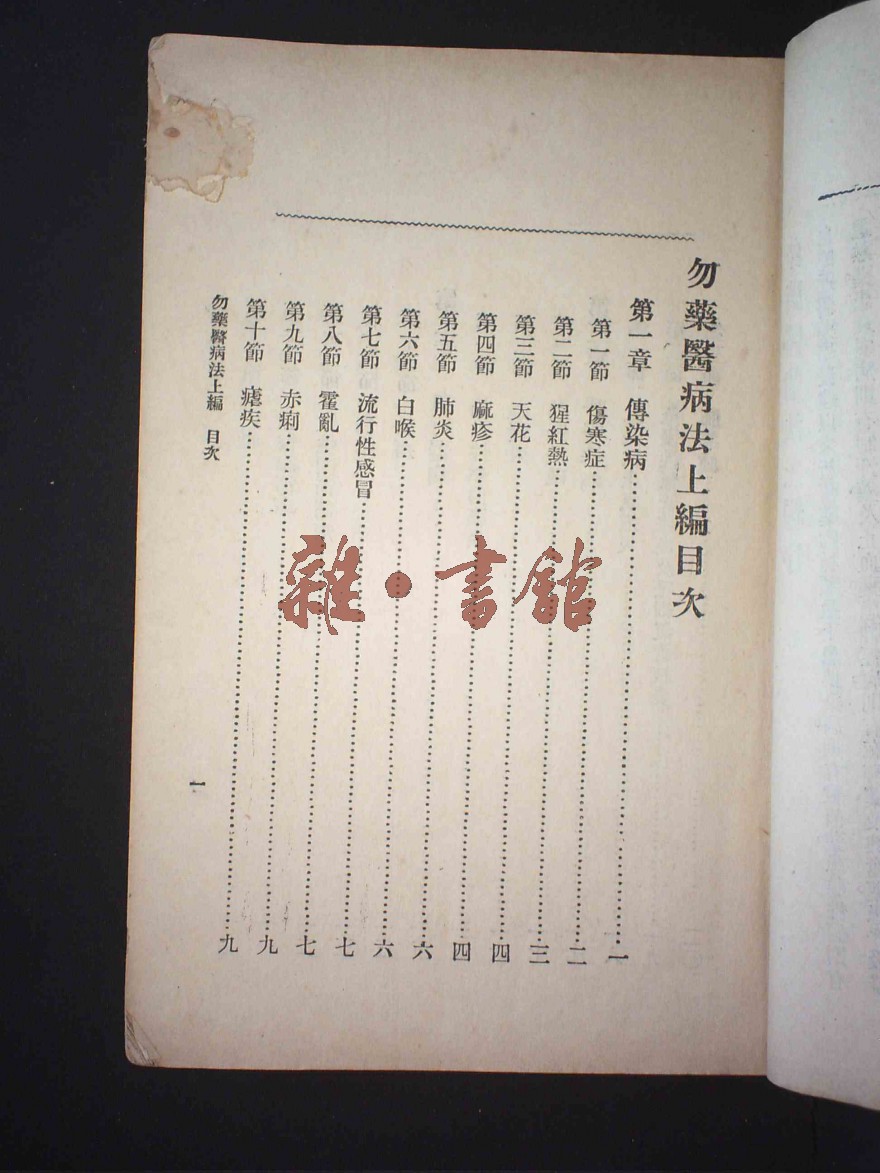 勿藥醫病法上編目次
第一章 傳染病……一
第一節 傷寒症……二
第二節 猩紅熱……三
第三節 天花……四
第四節 麻疹……四
第五節 肺炎……六
第六節 白喉……六
第七節 流行性感冒……七
第八節 霍亂……七
第九節 赤痢……九
第十節 瘧疾……九
勿藥醫病法上編 目次
一
雜·書館